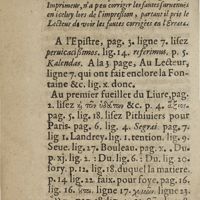 Imprimeur, n'a peu corriger les fautes survenuës
en icelny lors de l'impression, partant il prie le
Lecteur de voir les fautes corrigées en l'Errata.
A l'Epistre, pag. 3. ligne 7. lisez
peruicacissimos. lig. 14. referimus, p. 5.
Kalendas. A la 3. page, Au Lecteur,
ligne 7. qui ont fait enclore la Fon-
taine &c. lig. x. donc.
Au premier fueillet du Liure, pag.
2. lisez ἢ τὸν ὕδατων &c. p. 4. ἄξιος.
pag. 5. lig. 18. lisez Pithiuiers pour
Paris. pag. 6. lig. 4. Segrai. pag. 7.
lig 1. Landrey. lig 1. tention. lig. 9.
Seue. lig. 27. Bouleau. pag. x. : Du.
p. xj. lig. 2. : Du. lig. 6. : Du. lig. 20.
fory. p. 12. lig. 18. duquel la matiere.
p 14 lig. 22. faix. pour foye, pag. 16.
lig. 16. ligne 17. ligne 23.